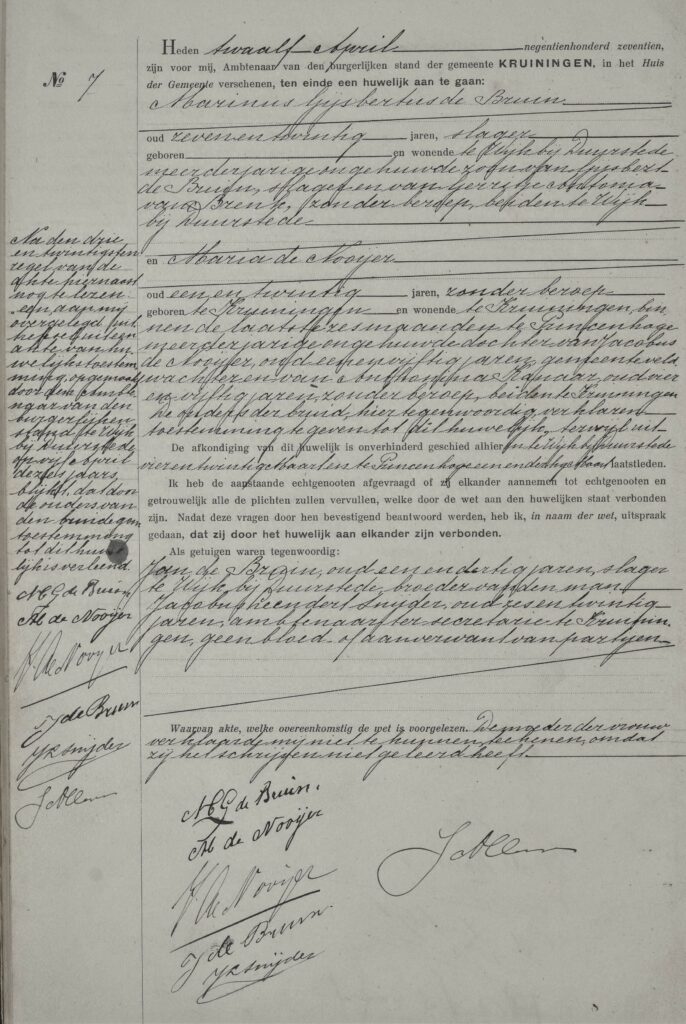 Nº 7
Heden twaalf April negentienhonderd zeventien,
zijn voor mij, Ambtenaar van den burgerlijken stand der gemeente KRUININGEN, in het Huis
der Gemeente verschenen, ten einde een huwelijk aan te gaan:
Marinus Gijsbertus de Bruin
oud zeven en twintig jaren, slager
geboren en wonende te Wijk bij Duurstede
meerderjarige ongehuwde zoon van Gijsbert
de Bruin, slager en van Gerritje Antonia
van Brenk, zonder beroep, beiden te Wijk
bij Duurstede
en Maria de Nooijer
oud een en twintig jaren, zonder beroep
geboren te Kruiningen en wonende te Kruiningen, bin
nen de laatste zes maanden te Princenhage
meerderjarige ongehuwde dochter van Jacobus
de Nooijer, oud een en vijftig jaren, gemeenteveld
wachter en van Anthonina Kanaar, oud vier
en vijftig jaren, zonder beroep, beiden te Kruiningen
De ouders der bruid, hier tegenwoordig, verklaren
toestemming te geven tot dit huwelijk, terwijl uit
De afkondiging van dit huwelijk is onverhinderd geschied alhier en te Wijk bij Duurstede
vier en twintig Maart en te Princenhage een en dertig Maart laatstleden.
Ik heb de aanstaande echtgenooten afgevraagd of zij elkander aannemen tot echtgenooten en
getrouwelijk alle de plichten zullen vervullen, welke door de wet aan den huwelijken staat verbonden
zijn. Nadat deze vragen door hen bevestigend beantwoord werden, heb ik, in naam der wet, uitspraak
gedaan, dat zij door het huwelijk aan elkander zijn verbonden.
Als getuigen waren tegenwoordig:
Jan de Bruin, oud een en dertig jaren, slager
te Wijk bij Duurstede, broeder van den man
Jacobus Leendert Snijder, oud zes en twintig
jaren, ambtenaar ter secretarie te Kruinin
gen, geen bloed- of aanverwant van partijen
Waarvan akte, welke overeenkomstig de wet is voorgelezen. De moeder der vrouw
verklaarde mij niet te kunnen teekenen, omdat
zij het schrijven niet geleerd heeft
M G de Bruin.
M de Nooijer
J. de Nooijer
J de Bruin.
JLSnijder
Na den drie
en twintigsten
regel van de
akte hiernaast
nog te lezen:
een aan mij
overgelegd uit
treksel uit een
akte van hu
welijkstoestem
ming, opgemaakt
door den Ambte
naar van den
burgerlijken
stand te Wijk
bij Duurstede
April
dezes jaars,
blijkt, dat door
de ouders van
den bruidegom
toestemming
tot dit huwe
lijk is verleend.
M G de Bruin
M de Nooijer
J. de Nooijer
J de Bruin
JLSnijder